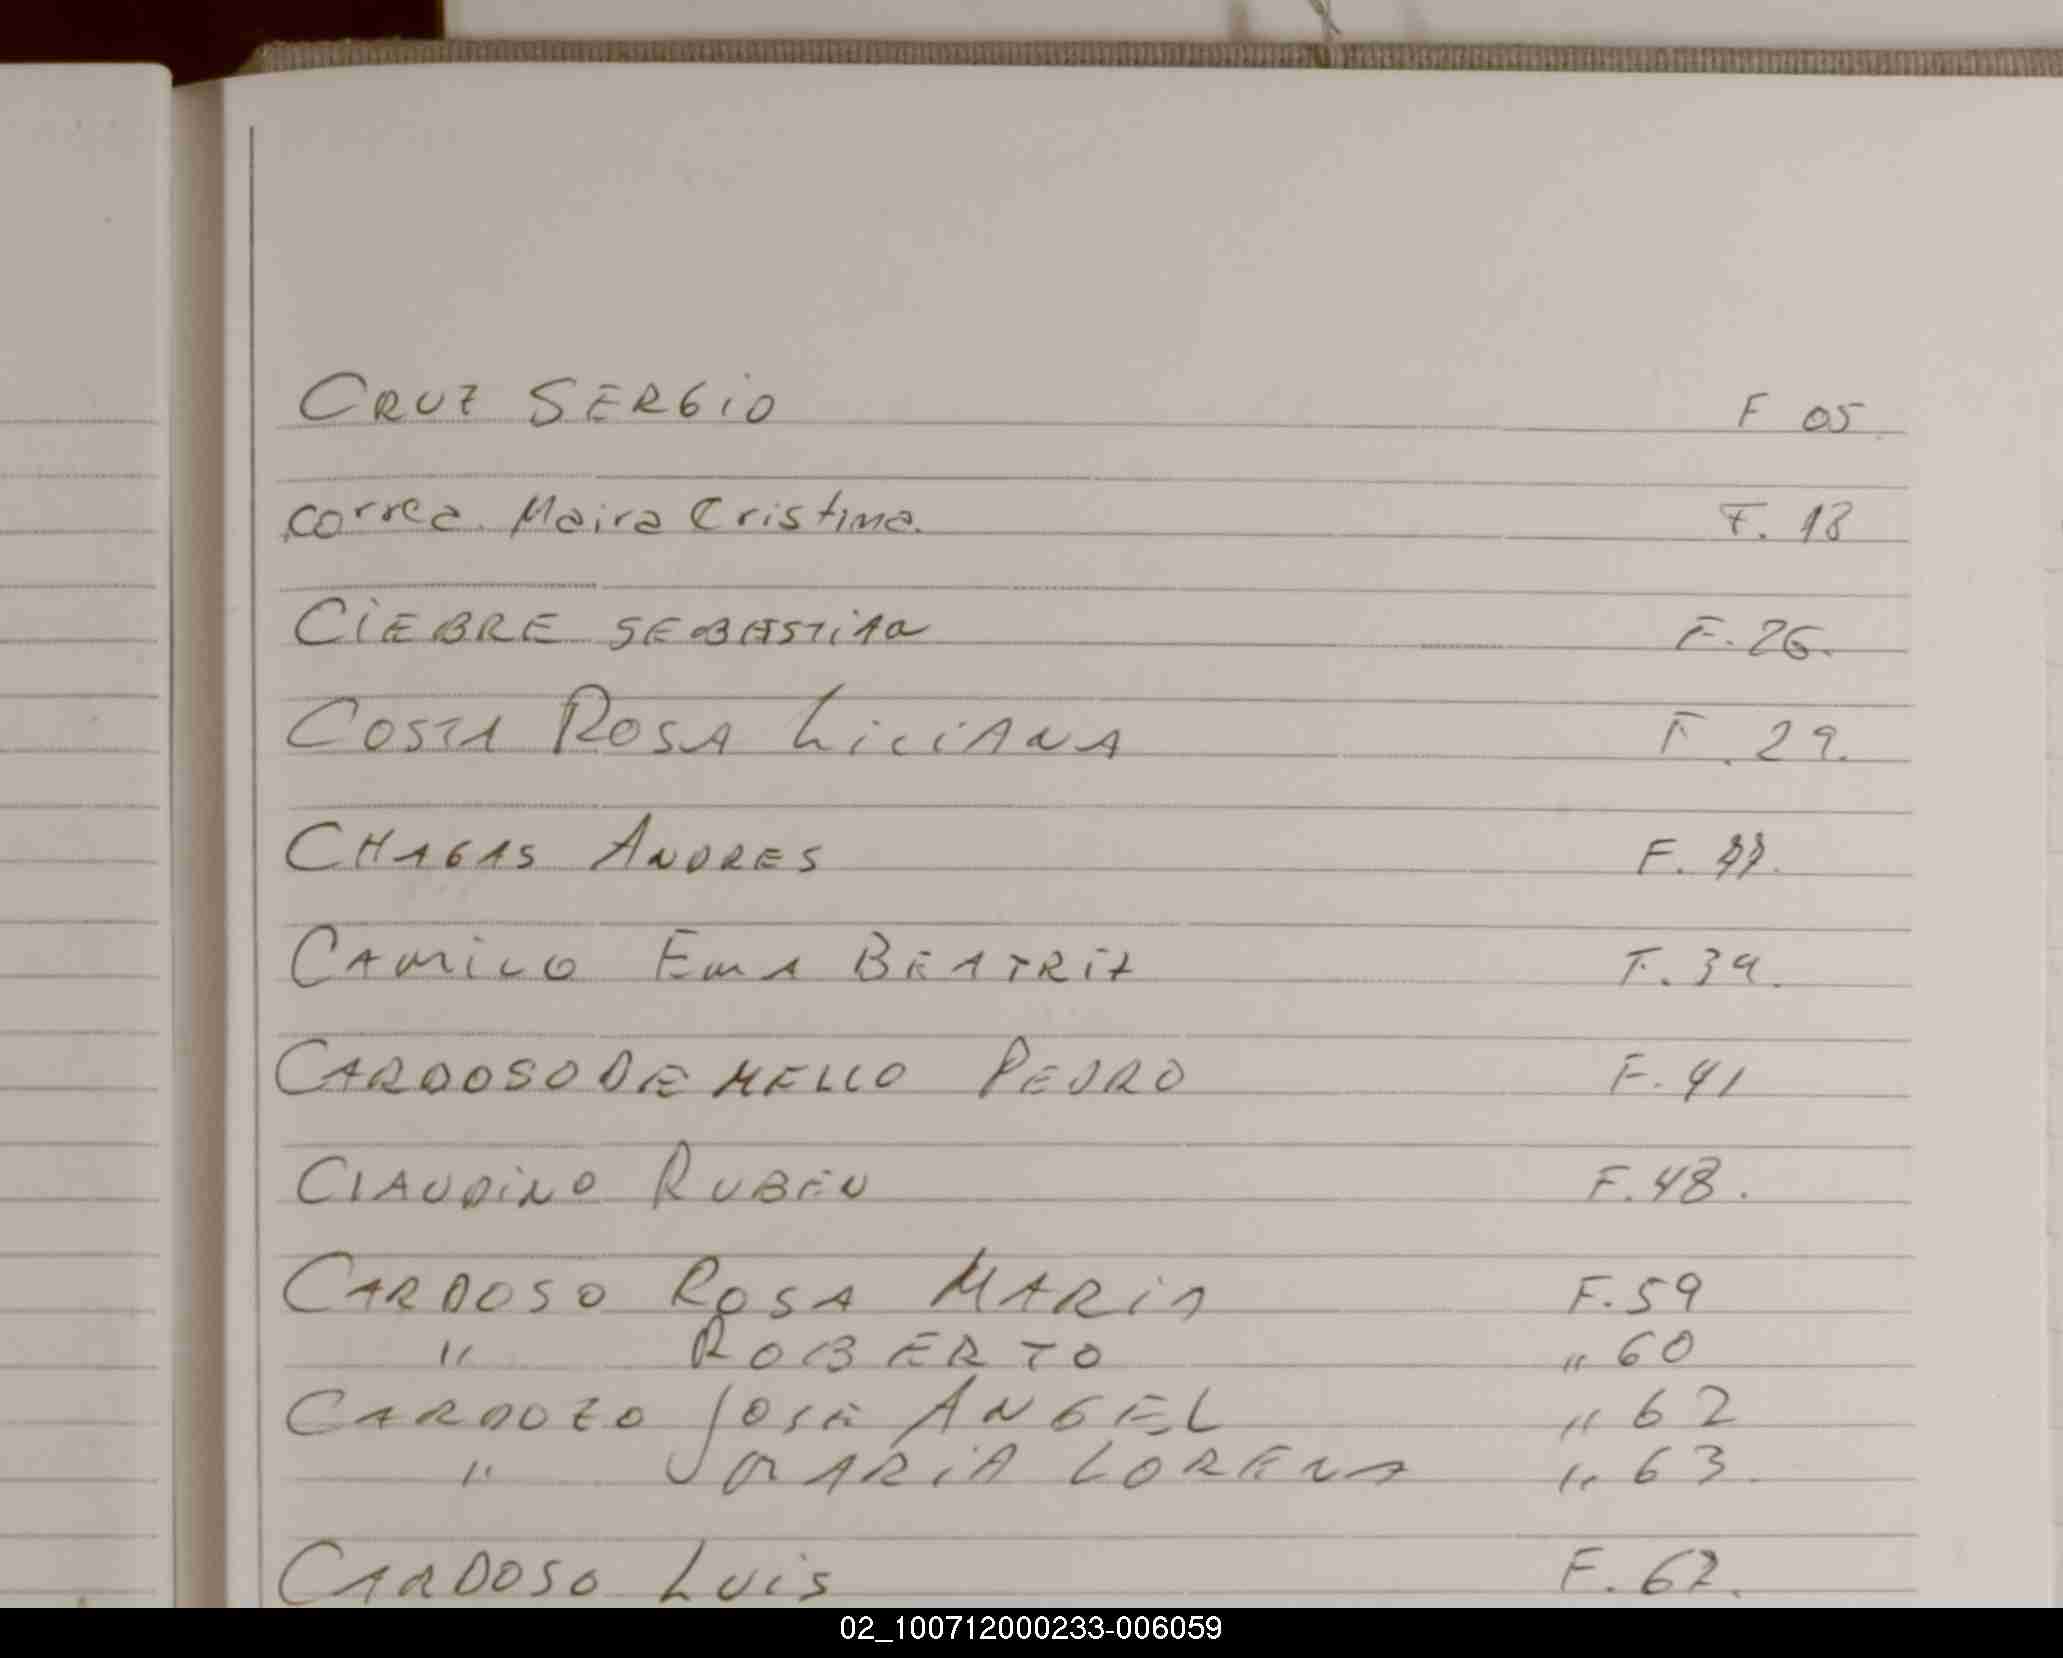 CRUZ SERGIO F 05
Correa Maira Cristina. F. 18
CIEBRE SEBASTIAN F. 26.
COSTA ROSA LILIANA F. 29.
CHAGAS ANDRES F.
CAMILO EMA BEATRIZ F. 39.
CARDOSO DE MELLO PEDRO F. 41
CLAUDINO RUBEN F. 48.
CARDOSO ROSA MARIA F. 59
" ROBERTO " 60
CARDOZO JOSE ANGEL " 62
" MARIA LORENA " 63.
CARDOSO LUIS F. 67.
02_100712000233-006059